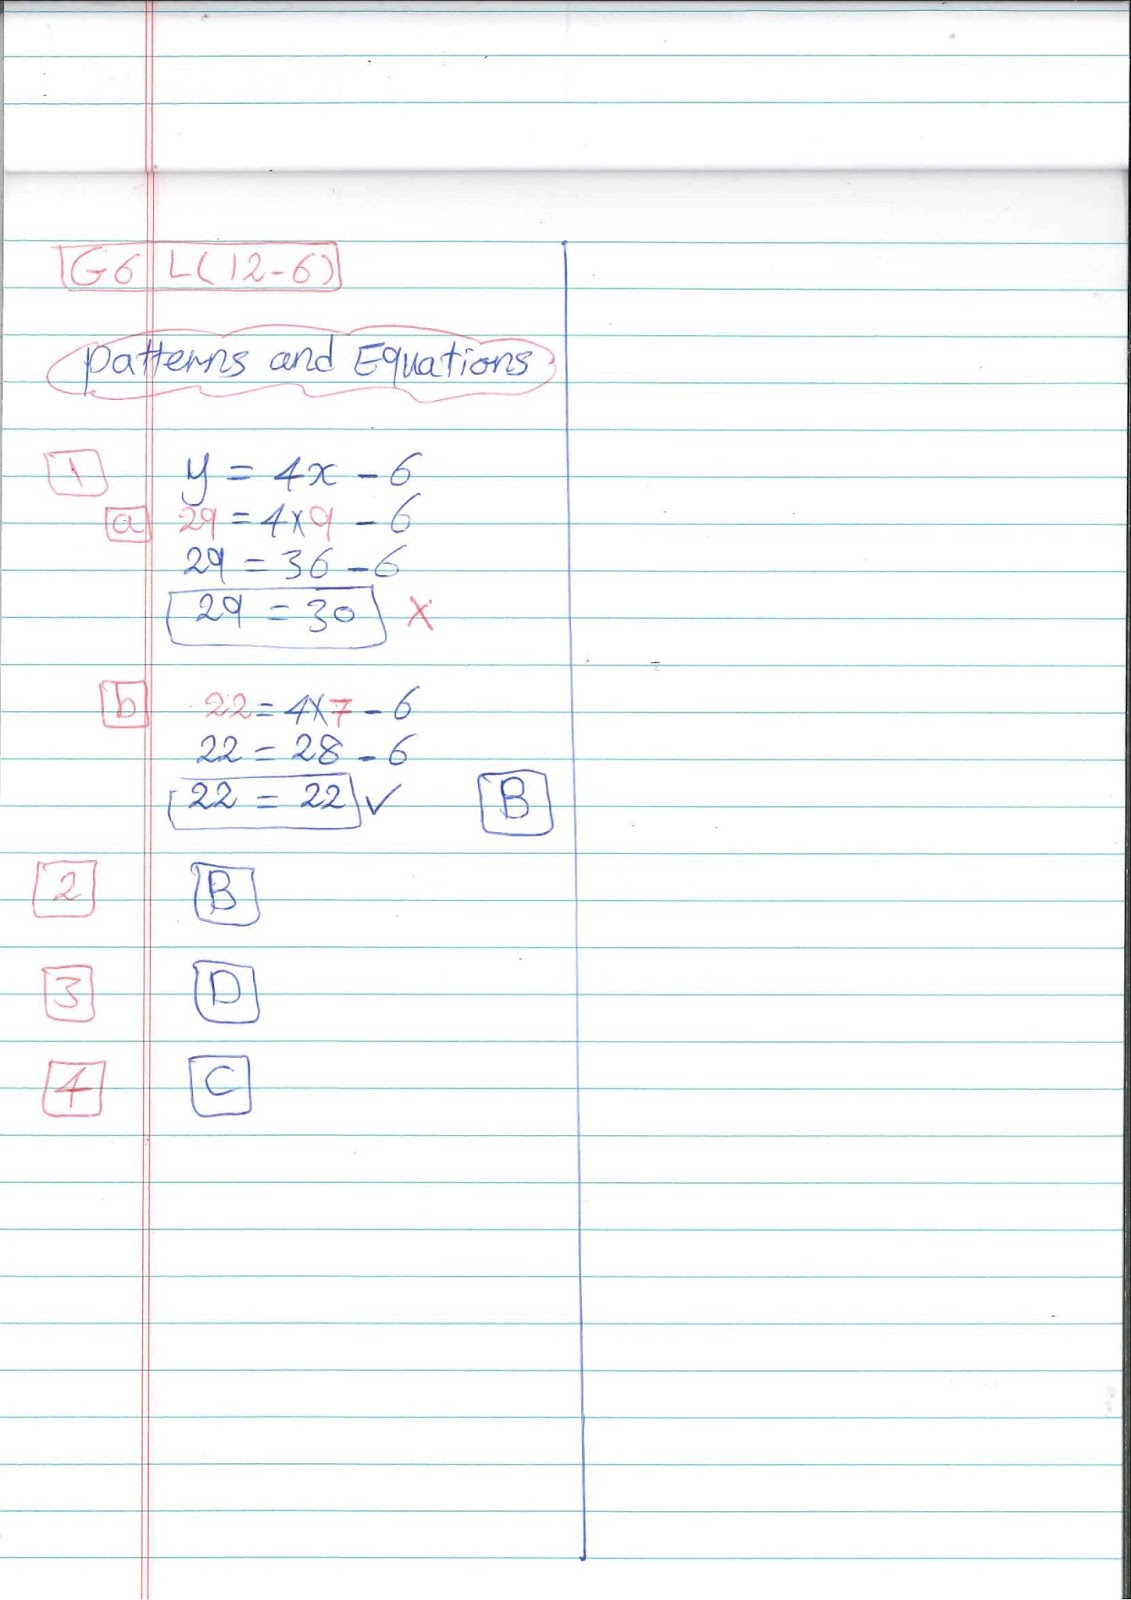 G6 L(12-6)
Patterns and Equations
1 y = 4x - 6
a 29 = 4x9 - 6
29 = 36 - 6
29 = 30 X
b 22 = 4x7 - 6
22 = 28 - 6
22 = 22 ✓ B
2 B
3 D
4 C